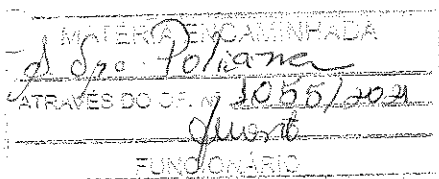 MATÉRIA ENCAMINHADA
Poliana
ATRAVÉS DO OF. Nº 1055/2021
FUNCIONÁRIO